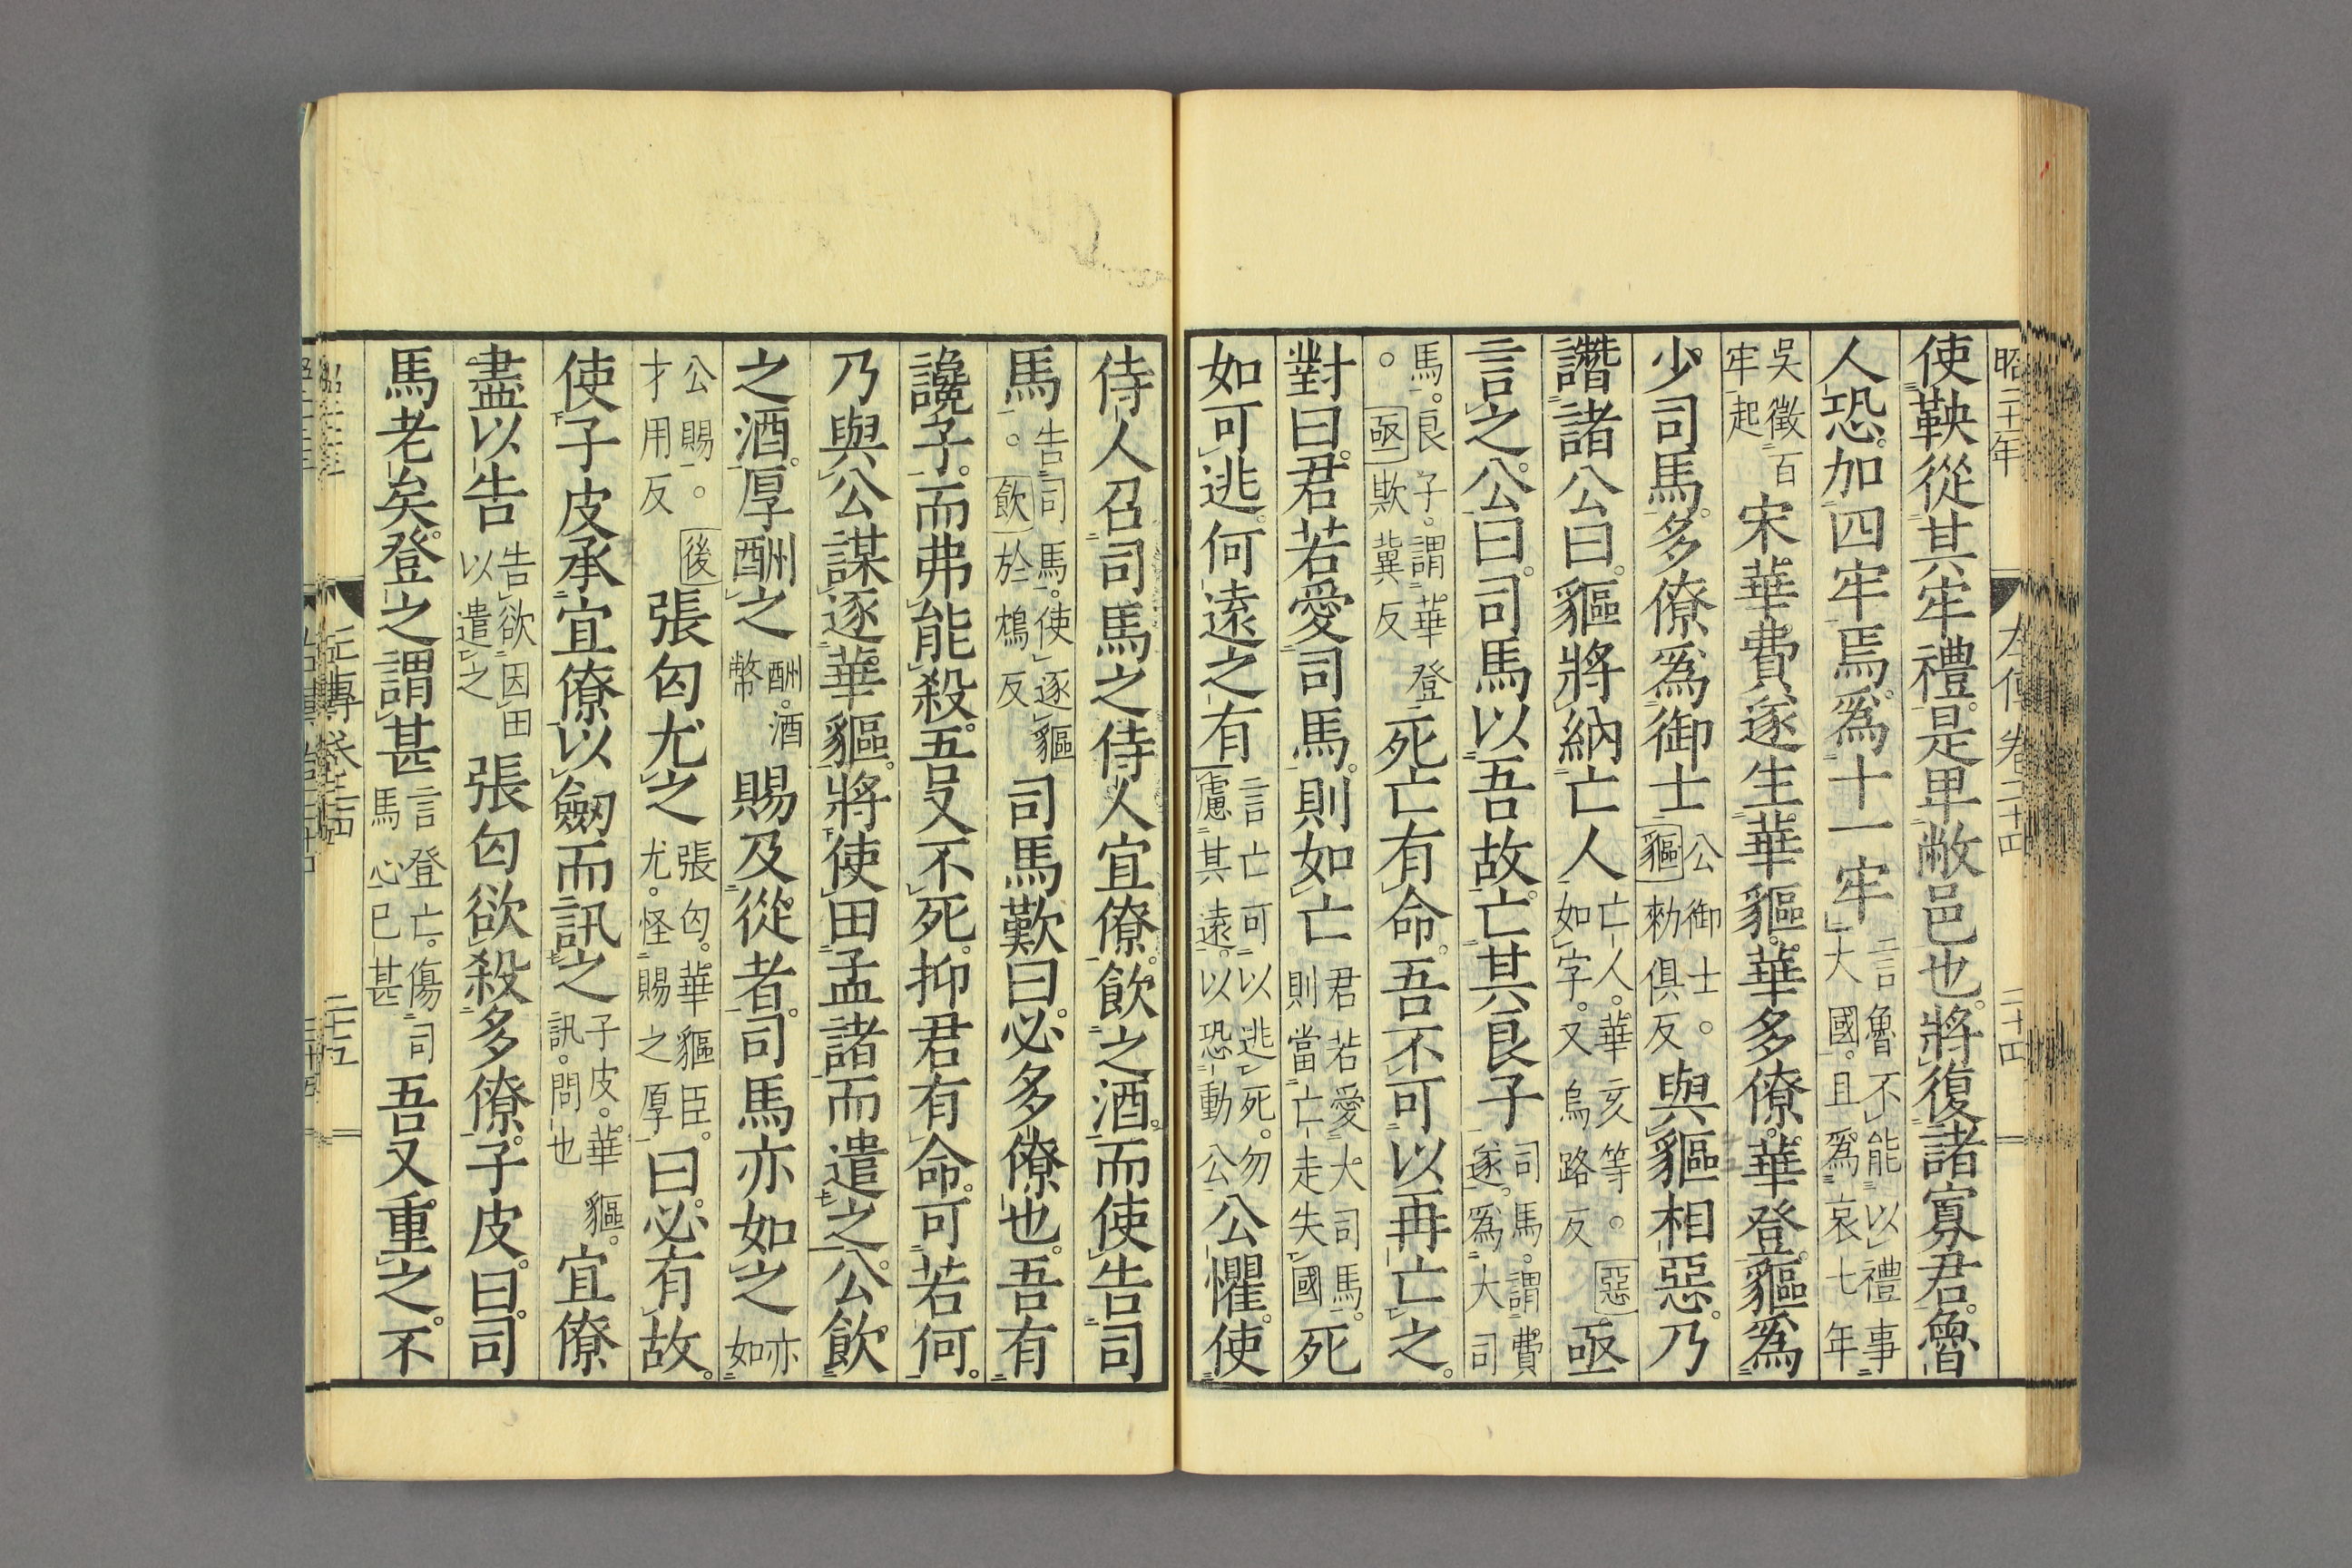 昭二十一年 左傳卷二十四 二十四
使鞅從其牢禮是卑敝邑也將復諸寡君魯
人恐加四牢焉爲十一牢言魯不能以禮事大國且爲哀七年
吳徵百牢起宋華費遂生華貙華多僚華登貙爲
少司馬多僚爲御士公御士。貙勑俱反與貙相惡乃
譖諸公曰貙將納亡人亡人華亥等。惡如字又烏路反亟
言之公曰司馬以吾故亡其良子司馬謂費遂爲大司
馬良子謂華登。亟欺冀反死亡有命吾不可以再亡之
對曰君若愛司馬則如亡君若愛大司馬則當亡走失國死
如可逃何遠之有言亡可以逃死勿慮其遠以恐動公公懼使
侍人召司馬之侍人宜僚飲之酒而使告司
馬告司馬使逐貙。飲於鴆反司馬歎曰必多僚也吾有
讒子而弗能殺吾又不死抑君有命可若何
乃與公謀逐華貙將使田孟諸而遣之公飲
之酒厚酬之酬酒幣賜及從者司馬亦如之亦如
公賜。從才用反張匄尤之張匄華貙臣尤怪賜之厚曰必有故
使子皮承宜僚以劒而訊之子皮華貙訊問也宜僚
盡以告告欲因田以遣之張匄欲殺多僚子皮曰司
馬老矣登之謂甚言登亡傷司馬心已甚吾又重之不
左傳卷二十四 二十五